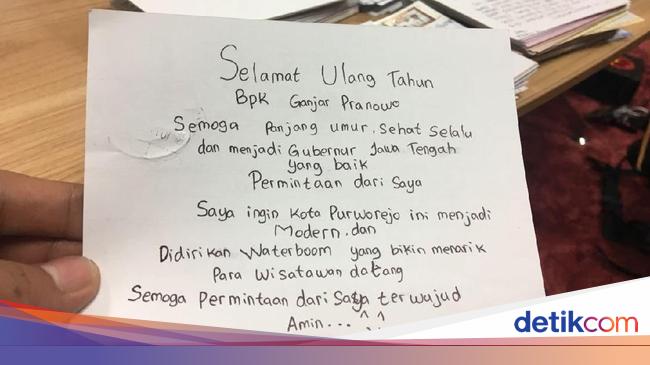 Selamat Ulang Tahun
Bpk Ganjar Pranowo
Semoga Panjang umur. Sehat Selalu
dan menjadi Gubernur Jawa Tengah
yang baik
Permintaan dari Saya
Saya ingin Kota Purworejo ini menjadi
Modern. dan
Didirikan Waterboom yang bikin menarik
Para Wisatawan datang
Semoga Permintaan dari Saya terwujud
Amin... ^_^
detikcom